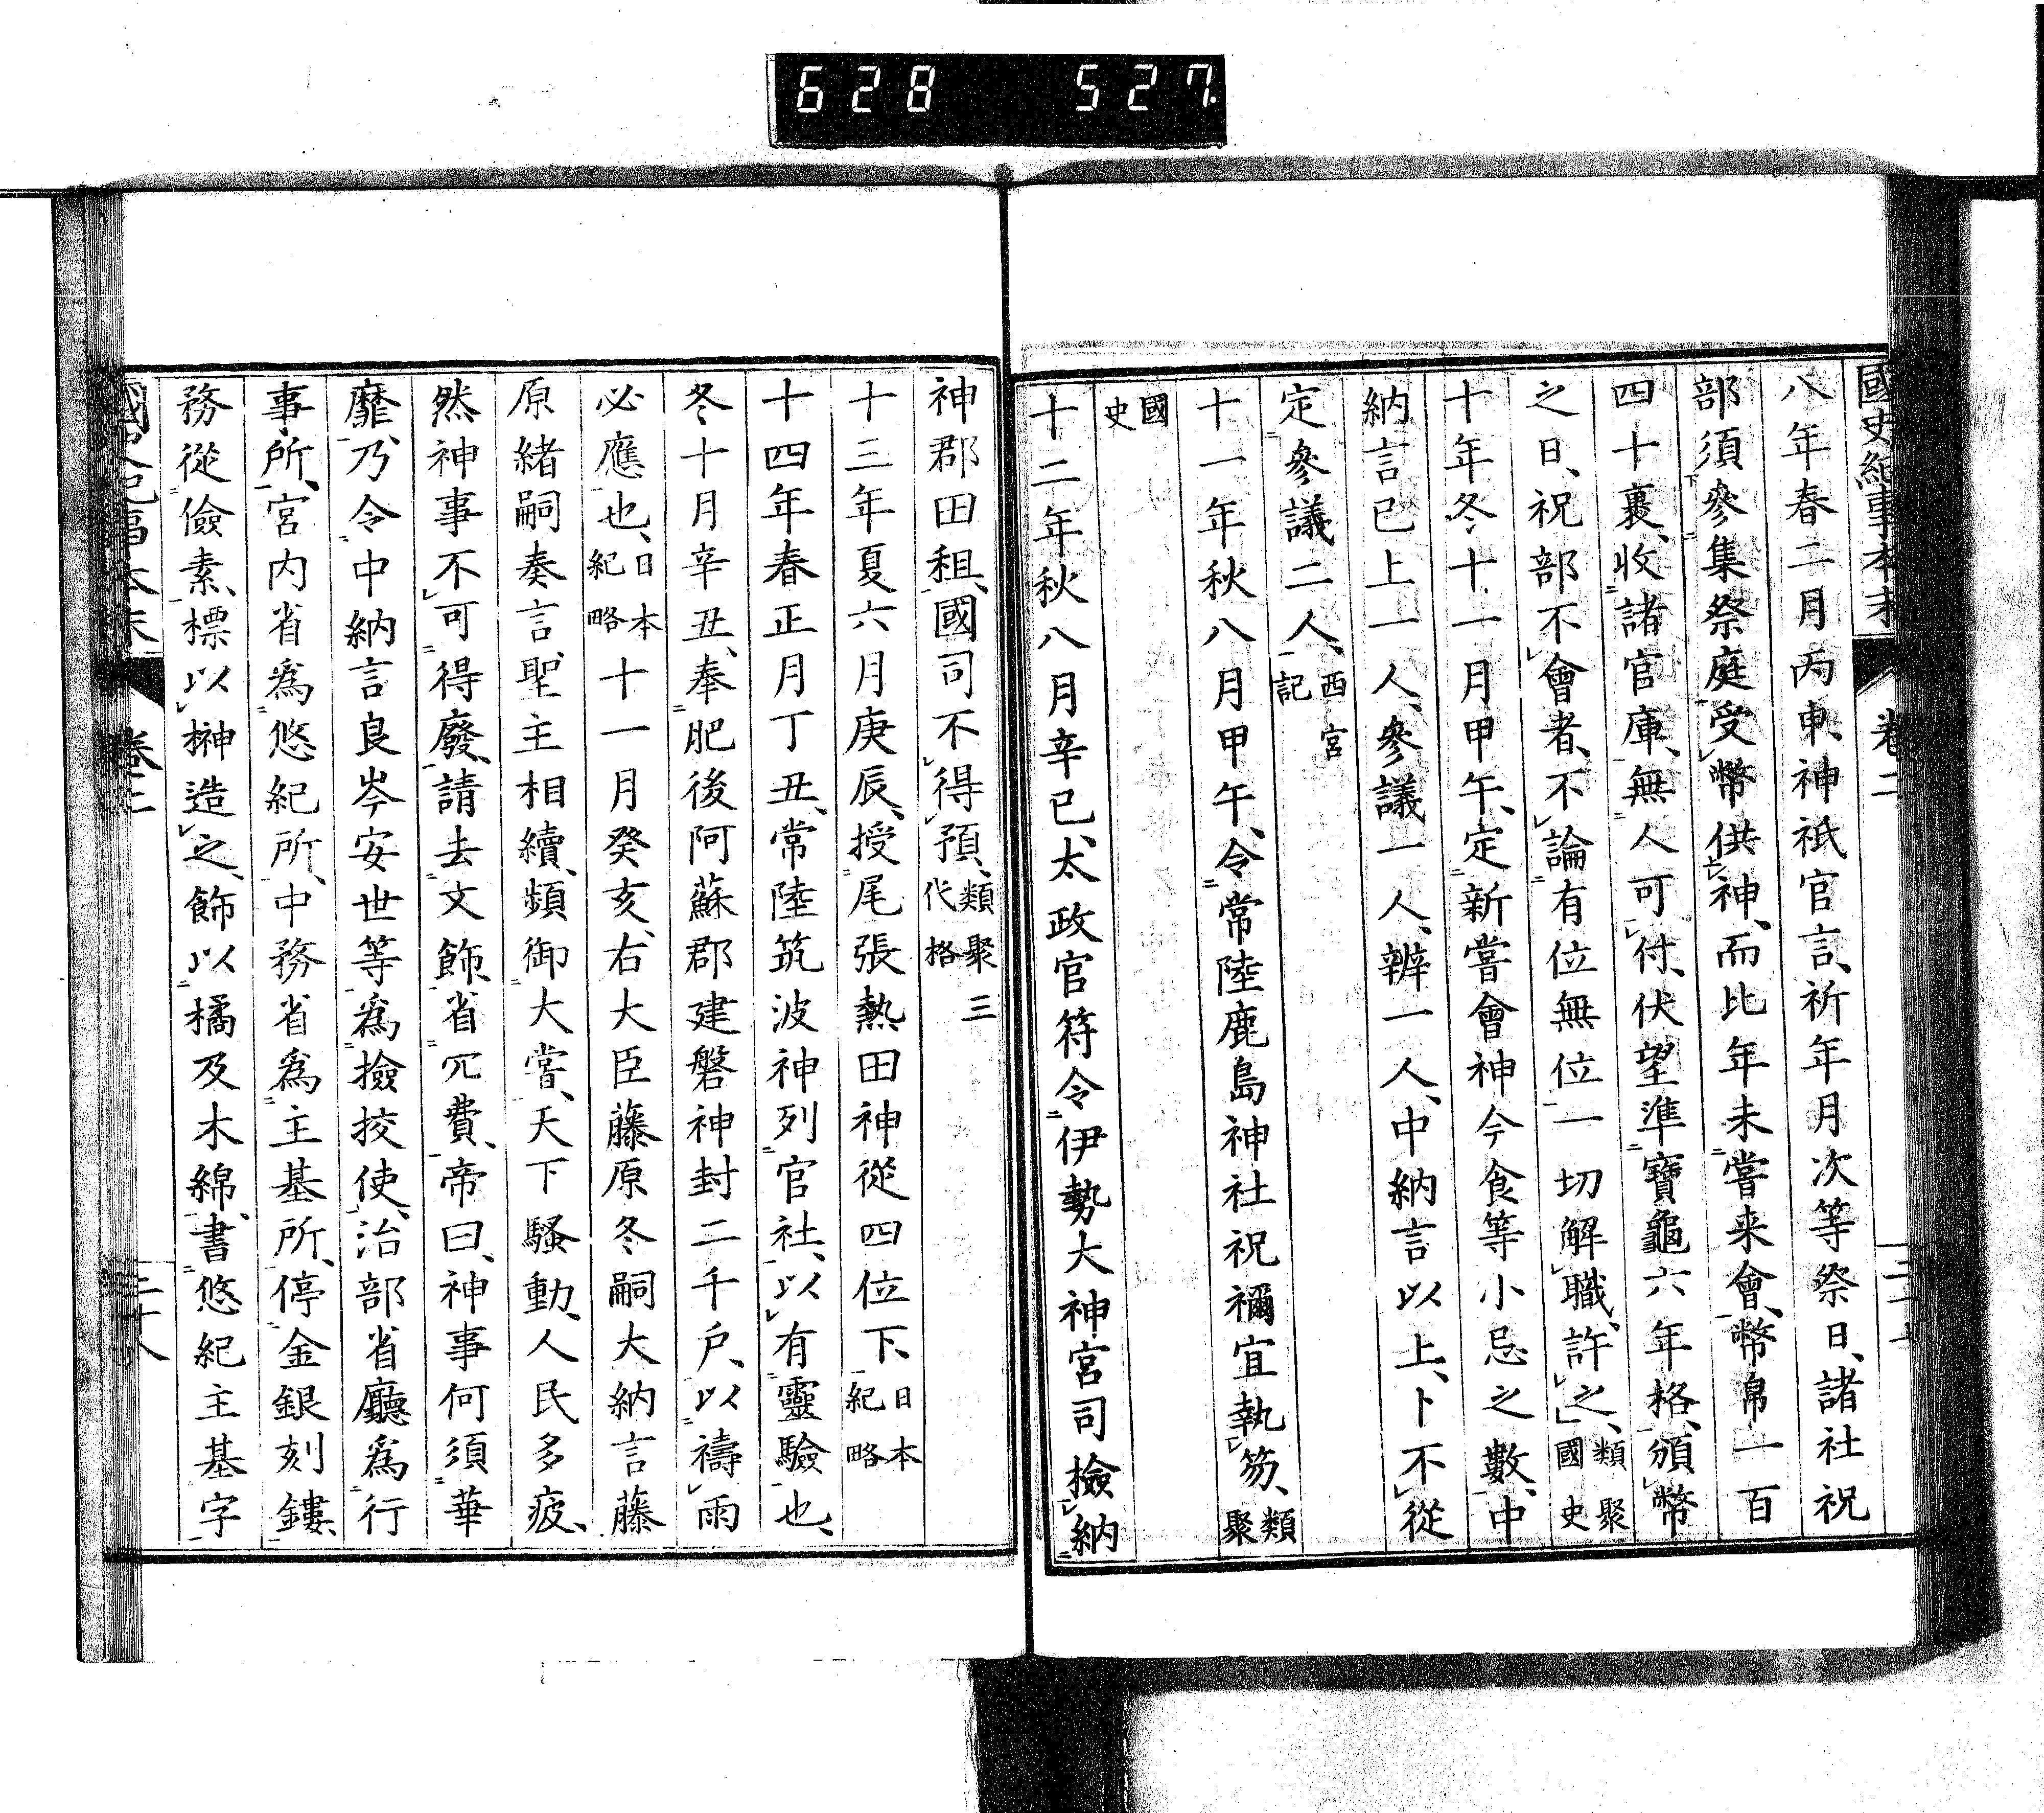 628 527
國史紀事本末 卷二
八年春二月丙申、神祇官言、祈年月次等祭日、諸社祝
部須參集祭庭受幣供神、而比年未嘗来會、幣帛一百
四十裹、收諸官庫、無人可付、伏望準寶龜六年格、頒幣
之日、祝部不會者、不論有位無位一切解職、許之、類聚國史
十年冬十一月甲午、定新嘗會神今食等小忌之數、中
納言已上一人、參議一人、辨一人、中納言以上、卜不從
定參議二人、西宮記
十一年秋八月甲午、令常陸鹿島神社祝禰宜執笏、類聚
國史
十二年秋八月辛巳、太政官符令伊勢大神宮司撿納
神郡田租、國司不得預、類聚三代格
十三年夏六月庚辰、授尾張熱田神從四位下、日本紀略
十四年春正月丁丑、常陸筑波神列官社、以有靈驗也、
冬十月辛丑、奉肥後阿蘇郡建磐神封二千戶、以禱雨
必應也、日本紀略十一月癸亥、右大臣藤原冬嗣大納言藤
原緒嗣奏言、聖主相續、頻御大嘗、天下騷動、人民多疲、
然神事不可得廢、請去文飾、省冗費、帝曰、神事何須華
靡、乃令中納言良岑安世等爲撿挍使、治部省廳爲行
事所、宮内省爲悠紀所、中務省爲主基所、停金銀刻鏤、
務從儉素、標以榊造之、飾以橘及木綿、書悠紀主基字
國史紀事本末 卷二 二十八